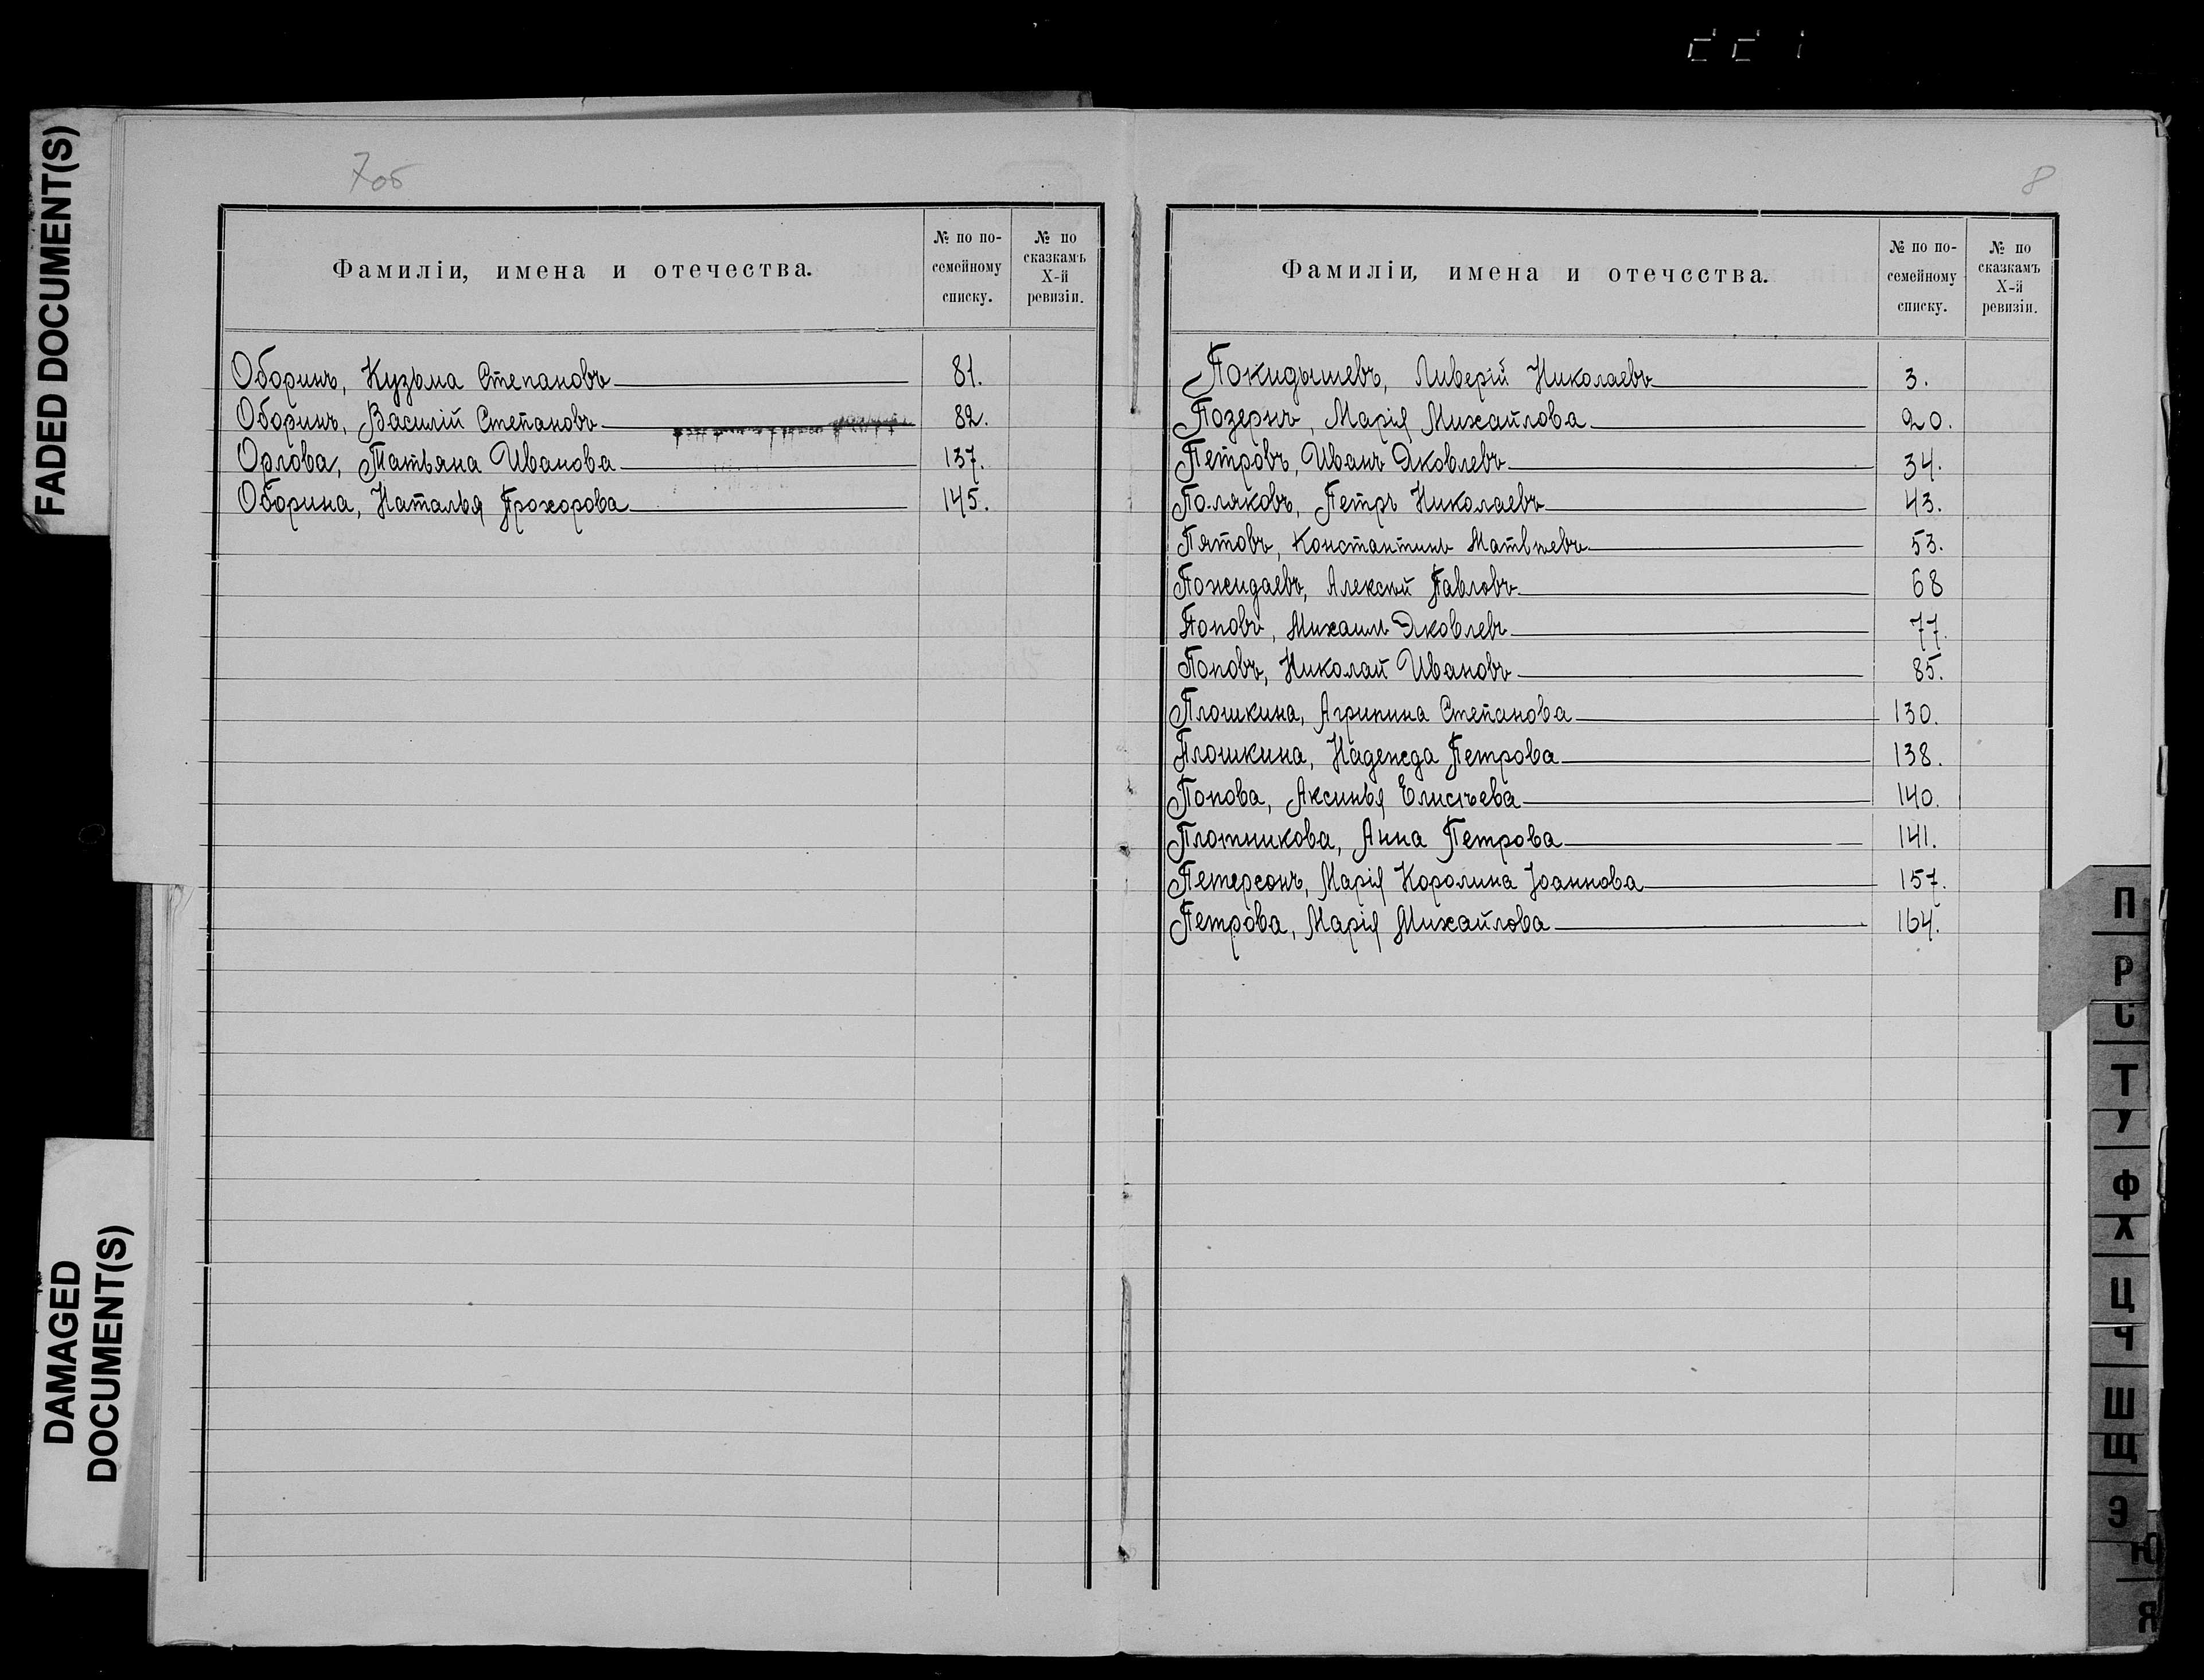 221
FADED DOCUMENT(S)
7об
8
Фамиліи, имена и отечества.
№ по по-
семейному
списку.
№ по
сказкамъ
X-й
ревизіи.
Оборинъ, Кузьма Степановъ 81.
Оборинъ, Василій Степановъ 82.
Орлова, Татьяна Иванова 137.
Оборина, Наталья Прохорова 145.
DAMAGED
DOCUMENT(S)
Фамиліи, имена и отечества.
№ по по-
семейному
списку.
№ по
сказкамъ
X-й
ревизіи.
Покидышевъ, Ливерій Николаевъ 3.
Позернъ, Марія Михайлова 20.
Петровъ, Иванъ Яковлевъ 34.
Поляковъ, Петръ Николаевъ 43.
Пятовъ, Константинъ Матвѣевъ 53.
Пожидаевъ, Алексѣй Павловъ 68
Поповъ, Михаилъ Яковлевъ 77.
Поповъ, Николай Ивановъ 85.
Плошкина, Агрипина Степанова 130.
Плошкина, Надежда Петрова 138.
Попова, Аксинья Елисѣева 140.
Плотникова, Анна Петрова 141.
Петерсонъ, Марія Королина Іоаннова 157.
Петрова, Марія Михайлова 164.
П
Р
С
Т
У
Ф
Х
Ц
Ч
Ш
Щ
Э
Ю
Я